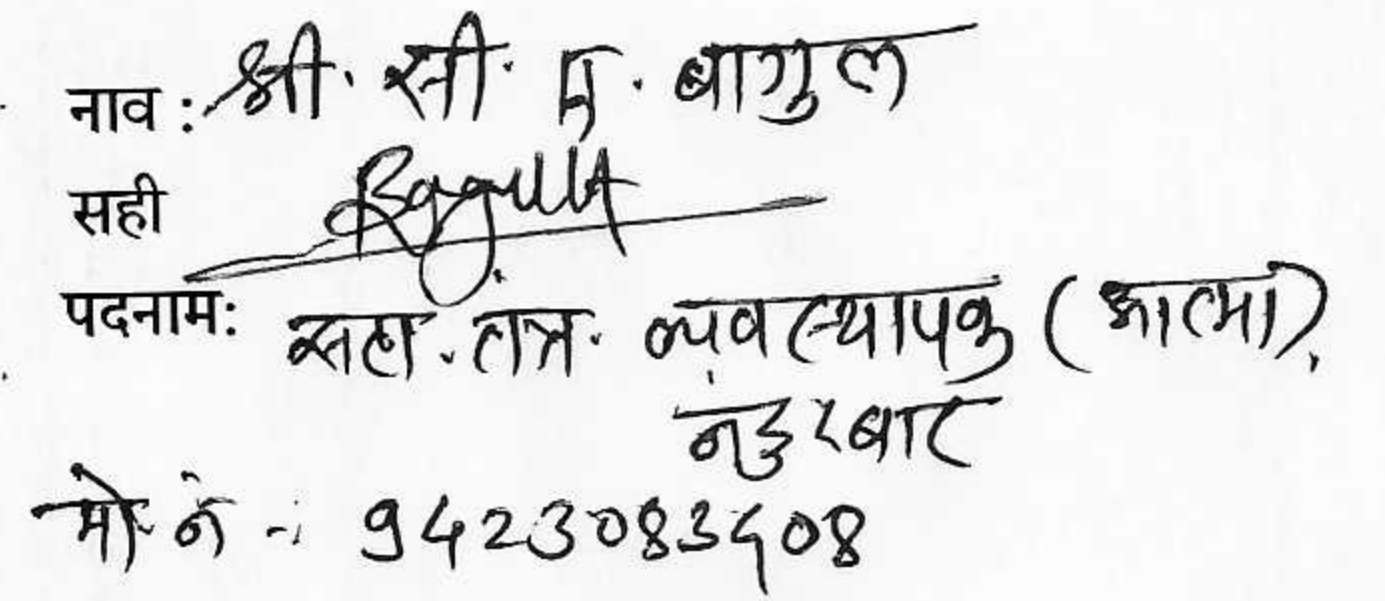 नाव : श्री. सी. ए. बागुल
सही Bagul
पदनाम: सहा. तंत्र. व्यवस्थापक (आत्मा).
नंदुरबार
मो नं -: 9423083908